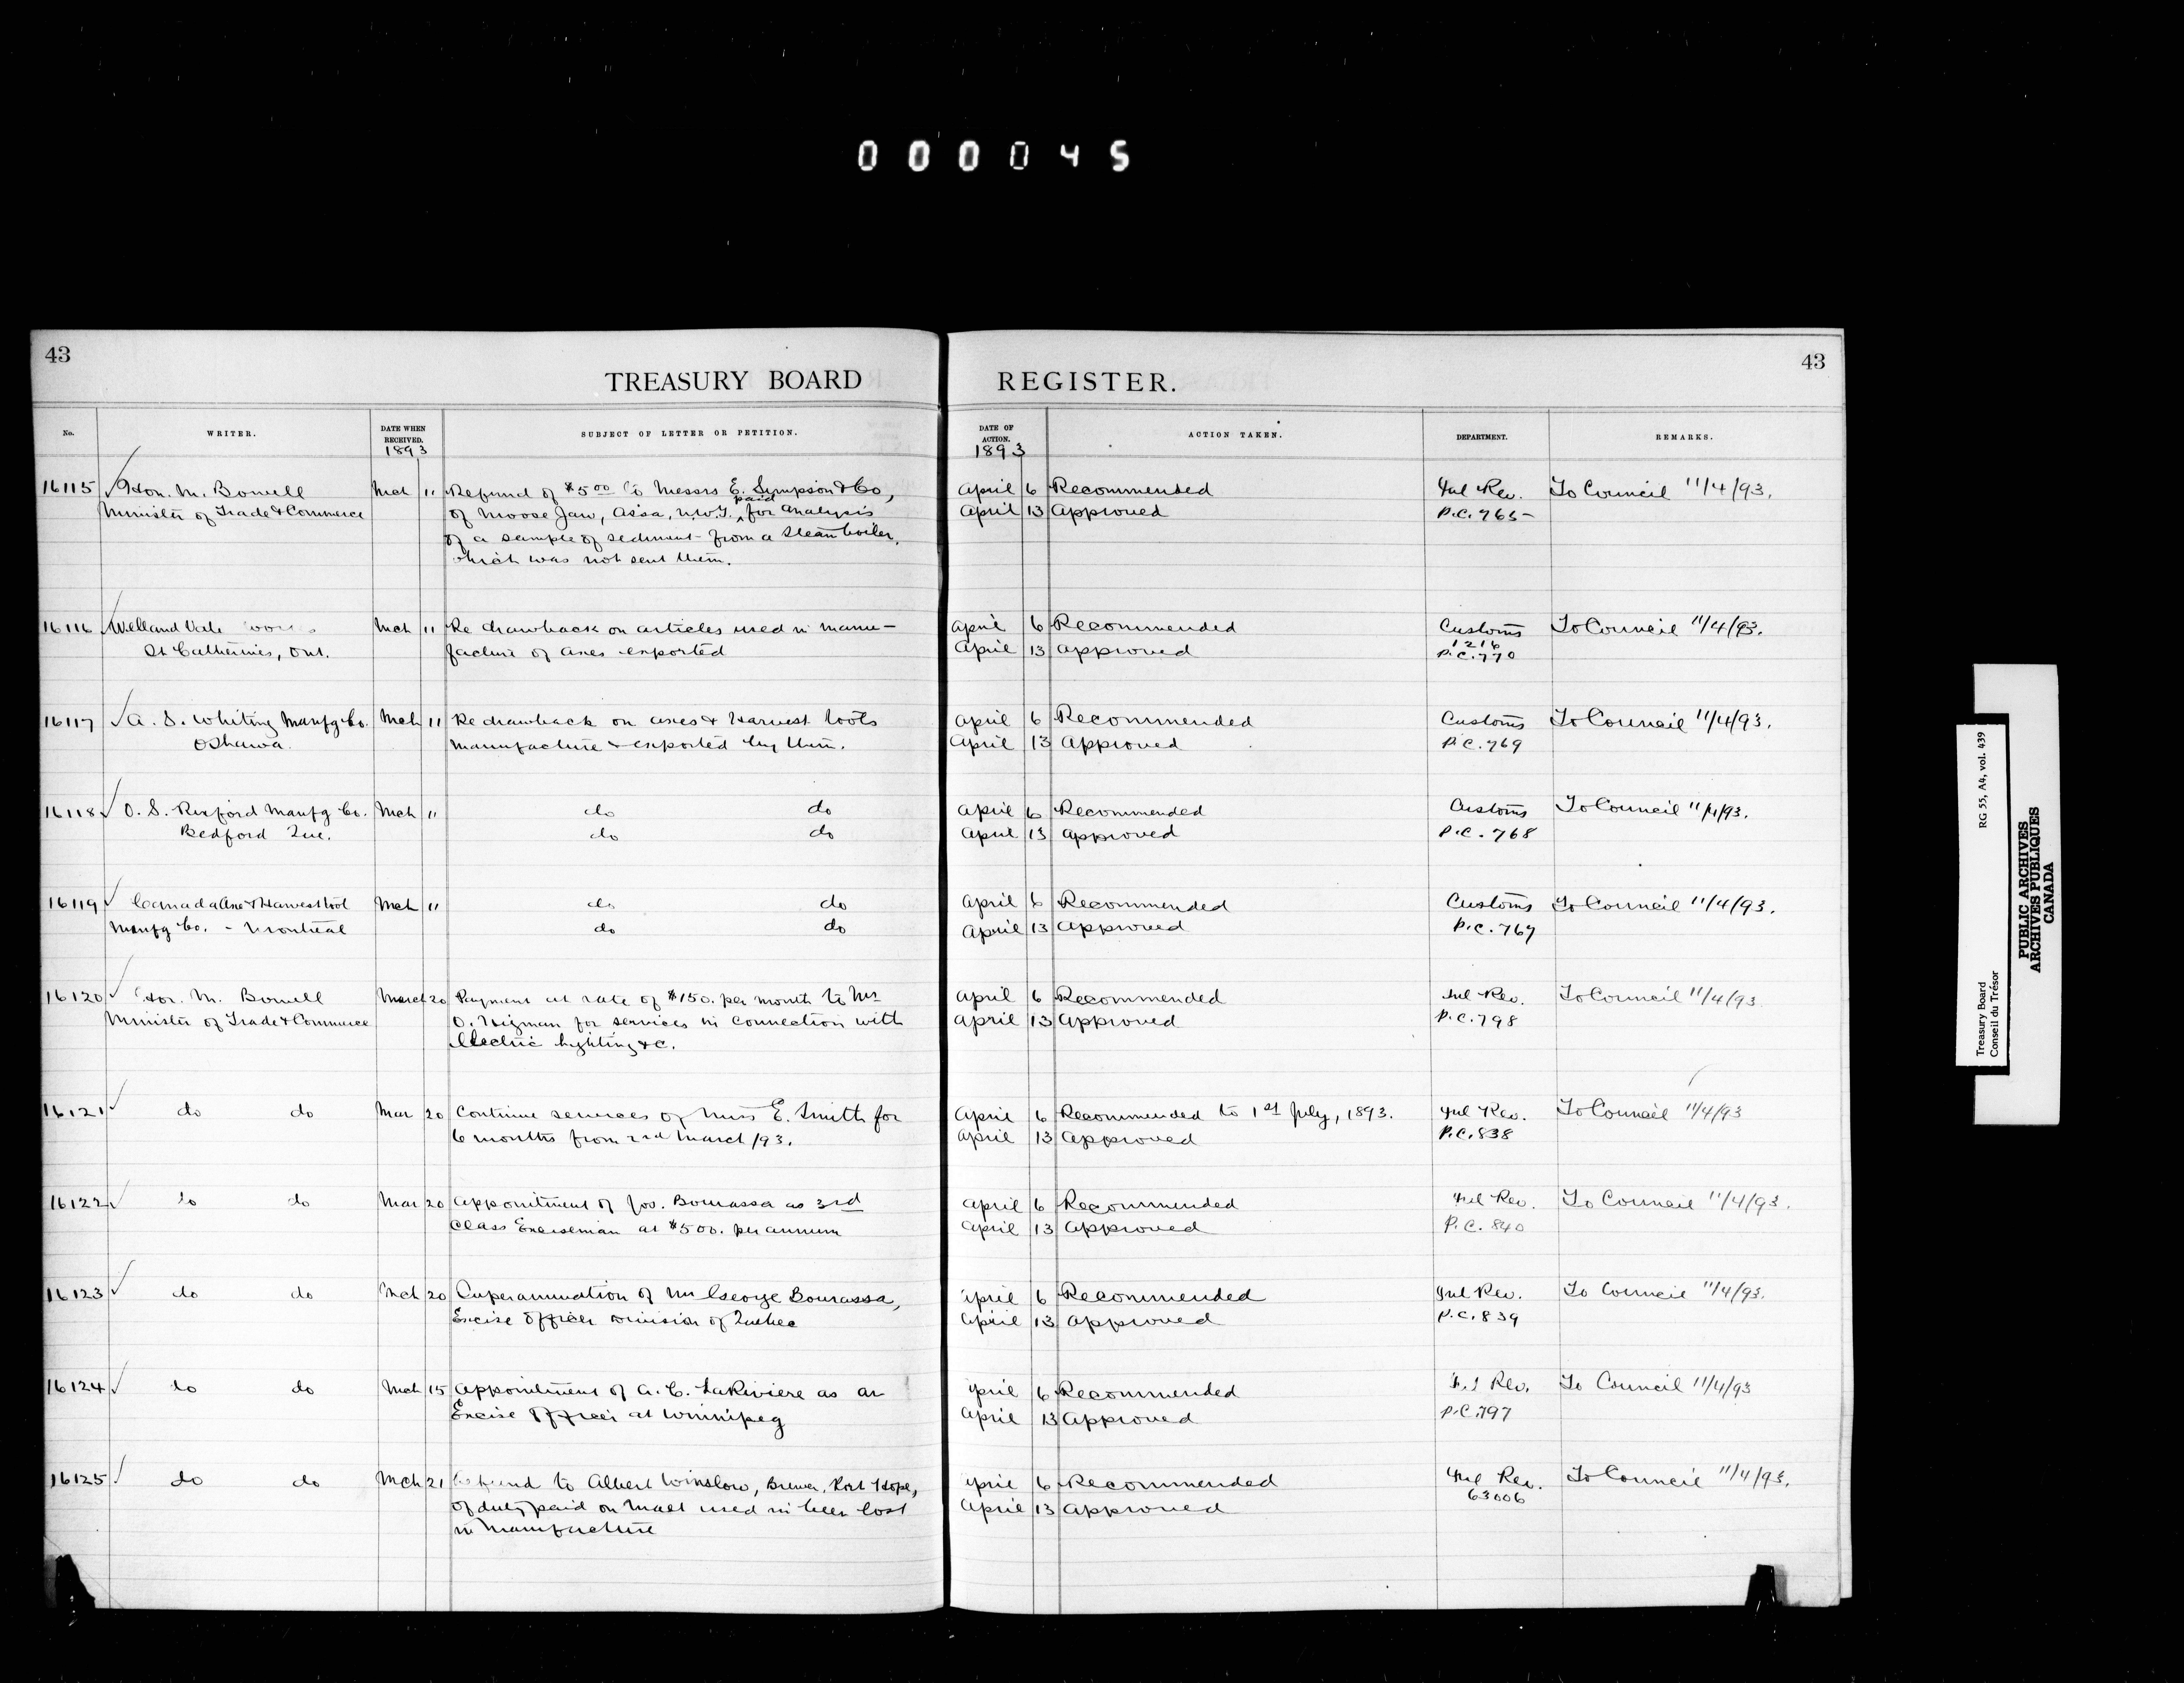 000045
43
TREASURY BOARD REGISTER.
43
No. WRITER. DATE WHEN RECEIVED. 1893 SUBJECT OF LETTER OR PETITION. DATE OF ACTION. 1893 ACTION TAKEN. DEPARTMENT. REMARKS.
16115 Hon. M. Bowell Mch 11 Refund of $5 00 to Messrs E. Sympson & Co, April 6 Recommended Inl Rev. To Council 11/4/93.
Minister of Trade & Commerce of Moose Jaw, Assa, N.W.T. paid for analysis April 13 Approved P.C. 765
of a sample of sediment from a steam boiler,
which was not sent them.
16116 Welland Vale Works Mch 11 Re drawback on articles used in manu- April 6 Recommended Customs To Council 11/4/93.
St Catherines, Ont. facture of axes exported April 13 Approved 1216
P.C. 770
16117 A. S. Whiting Manfg Co. Mch 11 Re drawback on axes & Harvest tools April 6 Recommended Customs To Council 11/4/93.
Oshawa. manufacture & exported by them. April 13 Approved P.C. 769
16118 O. S. Rixford Manfg Co. Mch 11 do do April 6 Recommended Customs To Council 11/4/93.
Bedford Que. do do April 13 Approved P.C. 768
16119 Canada Axe & Harvest tool Mch 11 do do April 6 Recommended Customs To Council 11/4/93.
Manfg Co. - Montreal do do April 13 Approved P.C. 767
16120 Hon. M. Bowell March 20 Payment at rate of $150. per month to Mr April 6 Recommended Inl Rev. To Council 11/4/93.
Minister of Trade & Commerce O. Higman for services in connection with April 13 Approved P.C. 798
Electric lighting &c.
16121 do do Mar 20 Continue services of Miss E. Smith for April 6 Recommended to 1st July, 1893. Inl Rev. To Council 11/4/93
6 months from 2nd March /93. April 13 Approved P.C. 838
16122 do do Mar 20 Appointment of Jos. Bourassa as 3rd April 6 Recommended Inl Rev. To Council 11/4/93.
Class Exciseman at $500. per annum April 13 Approved P.C. 840
16123 do do Mch 20 Superannuation of Mr George Bourassa, April 6 Recommended Inl Rev. To Council 11/4/93.
Excise Officer Division of Quebec April 13 Approved P.C. 839
16124 do do Mch 15 Appointment of A. C. LaRiviere as an April 6 Recommended Inl Rev. To Council 11/4/93
Excise Officer at Winnipeg April 13 Approved P.C. 797
16125 do do Mch 21 Refund to Albert Winslow, Brewer, Port Hope, April 6 Recommended Inl Rev. To Council 11/4/93.
of duty paid on Malt used in beer lost April 13 Approved 63006
in manufacture
Treasury Board RG 55, A4, vol. 439
Conseil du Trésor
PUBLIC ARCHIVES
ARCHIVES PUBLIQUES
CANADA